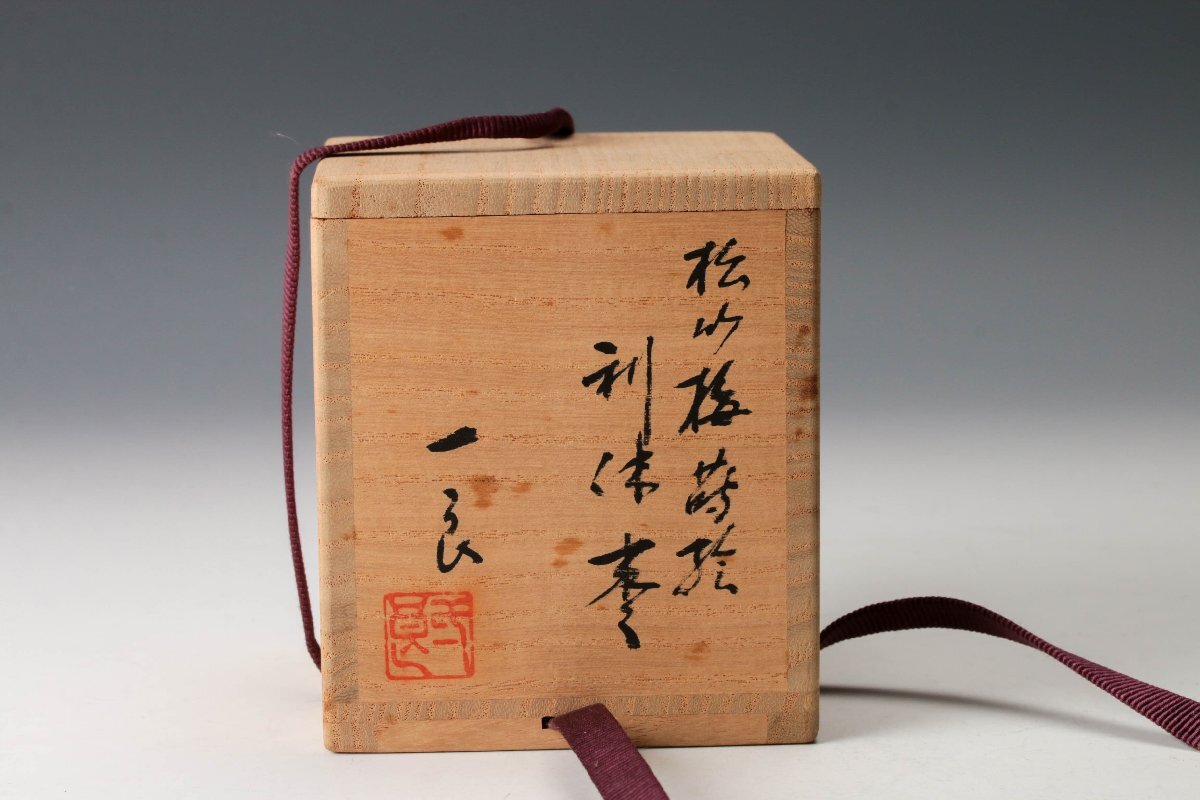 松竹梅蒔絵
利休棗
一良